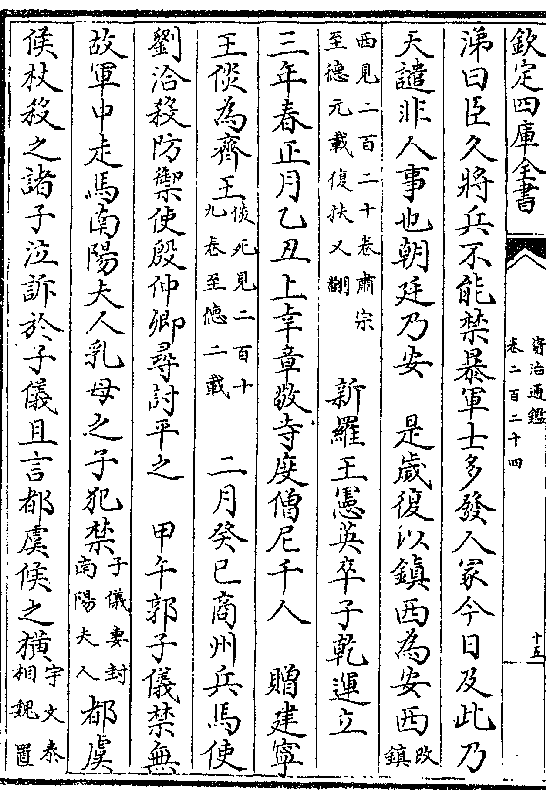 欽定四庫全書
資治通鑑
卷二百二十四
十五
涕曰臣久將兵不能禁暴軍士多發人冢今日及此乃
天譴非人事也朝廷乃安　是歲復以鎮西為安西改鎮
西見二百二十卷肅宗至德元載復扶又翻　新羅王憲英卒子乾運立
三年春正月乙丑上幸章敬寺度僧尼千人　贈建寧
王倓為齊王倓死見二百十九卷至德二載　二月癸巳商州兵馬使
劉洽殺防禦使殷仲卿尋討平之　甲午郭子儀禁無
故軍中走馬南陽夫人乳母之子犯禁子儀妻封南陽夫人都虞
候杖殺之諸子泣訴於子儀且言都虞候之橫宇文泰相魏置